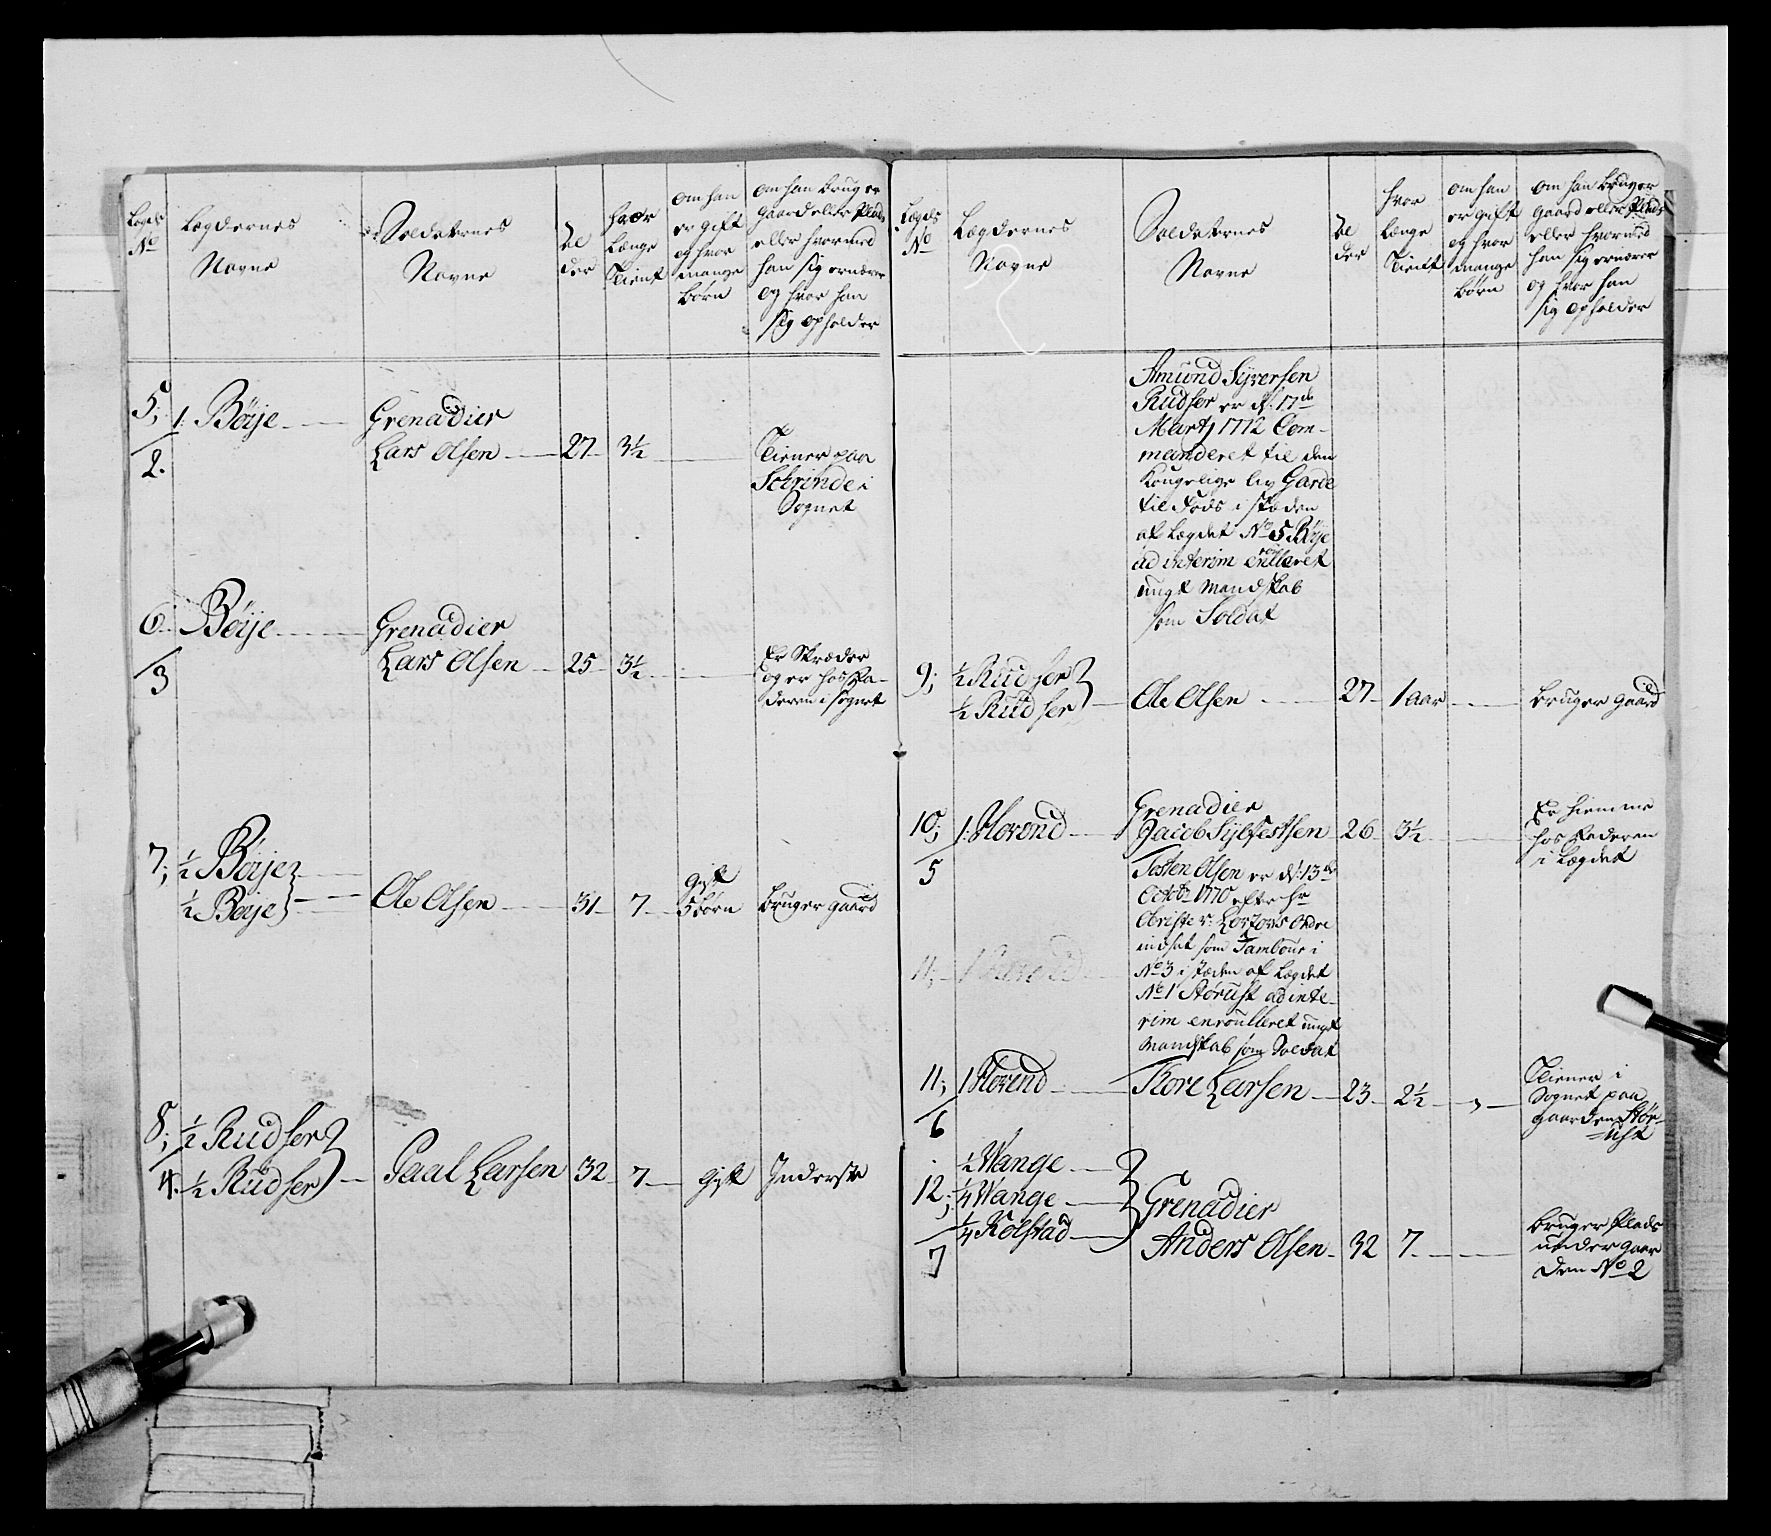 Legds
No
Lægdernes
Navne
Soldaternes
Navne
Al
der
hvor
Længe
Tient
om han
er gift
og hvor
mange
børn
om han bruger
gaard eller Plads
eller hvormed
han sig ernærer
og hvor han
sig opholder
5; 1: Börje
2.
Grenadier
Lars Olsen 27 3½
Tiener paa
Schrinde i
Sognet
6. Börje
3
Grenadier
Lars Olsen 25 3½
Er Skræder
og er hos Fa-
deren i Sognet
7; ½ Börje
½ Börje
Ole Olsen 31 7
gift
5 børn
bruger gaard
8; ½ Rudser
4. ½ Rudser
Paal Larsen 32 7 gift Inderste
Legds
No
Lægdernes
Navne
Soldaternes
Navne
Al
der
hvor
længe
Tient
om han
er gift
og hvor
mange
børn
om han bruger
gaard eller Plads
eller hvormed
han sig ernærer
og hvor han
sig opholder
Amund Syversen
Rudser er d: 17de
Martj 1772 Com-
manderet til den
Kongelige liv Garde
til Fods i stæden
af Lægdet No 5 Börje
ad interim enrulleret
ungt Mandskab
som Soldat
9; ½ Rudser
½ Rudser
Ole Olsen 27 1 aar
bruger gaard
10; 1: Hovend
5
Grenadier
Jacob Sylfestsen 26 3½
Er hiemme
hos Faderen
i Lægdet
Tosten Olsen er d: 13de
Octobr 1770 efter Hr
ordre
indsat som Tambour i
No 3 i stæden af Lægdet
No 1 Storust ad inte-
rim enroulleret ungt
Mandskab som Soldat
11; 1
11; 1 Hovend
6
Tore Larsen 23 2½
Tiener i
Sognet paa
gaarden Stor-
ust
½ Wange
12; ¼ Wange
¼ Kolstad
7
Grenadier
Anders Olsen 32 7
bruger Plads
under gaar
den No 2